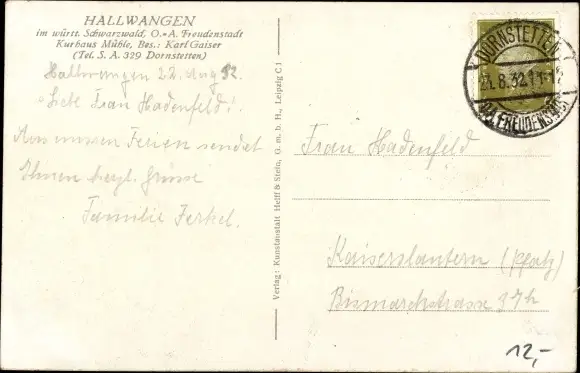 HALLWANGEN
im württ. Schwarzwald, O.-A. Freudenstadt
Kurhaus Mühle, Bes.: Karl Gaiser
(Tel. S. A. 329 Dornstetten)
Hallwangen 22. Aug 32.
Liebe Frau Hadenfeld!
Aus unseren Ferien sendet
Ihnen herzl. Grüsse
Familie Ferkel.
Verlag: Kunstanstalt Helff & Stein, G. m. b. H., Leipzig C 1
DORNSTETTEN
8.32.11-12
FREUDENSTADT
Frau Hadenfeld
Kaiserslautern (Pfalz)
Bismarckstrasse
12,-